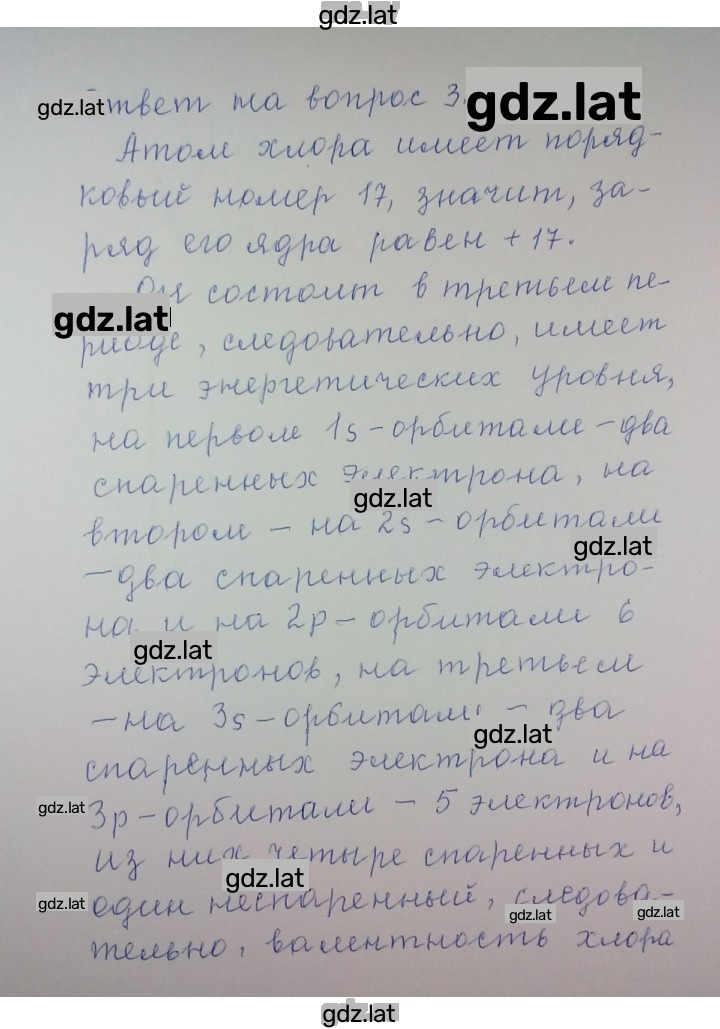 gdz.lat
gdz.lat
Ответ на вопрос 3.
gdz.lat
Атом хлора имеет поряд-
ковый номер 17, значит, за-
ряд его ядра равен +17.
Он состоит в третьем пе-
gdz.lat
риоде, следовательно, имеет
три энергетических уровня,
на первом 1s-орбитали-два
спаренных электрона, на
gdz.lat
втором - на 2s-орбитали
gdz.lat
-два спаренных электро-
на и на 2p-орбитали 6
gdz.lat
электронов, на третьем
-на 3s-орбитали - два
gdz.lat
спаренных электрона и на
gdz.lat
3p-орбитали - 5 электронов,
из них четыре спаренных и
gdz.lat
gdz.lat
один неспаренный, следова-
gdz.lat
gdz.lat
тельно, валентность хлора
gdz.lat